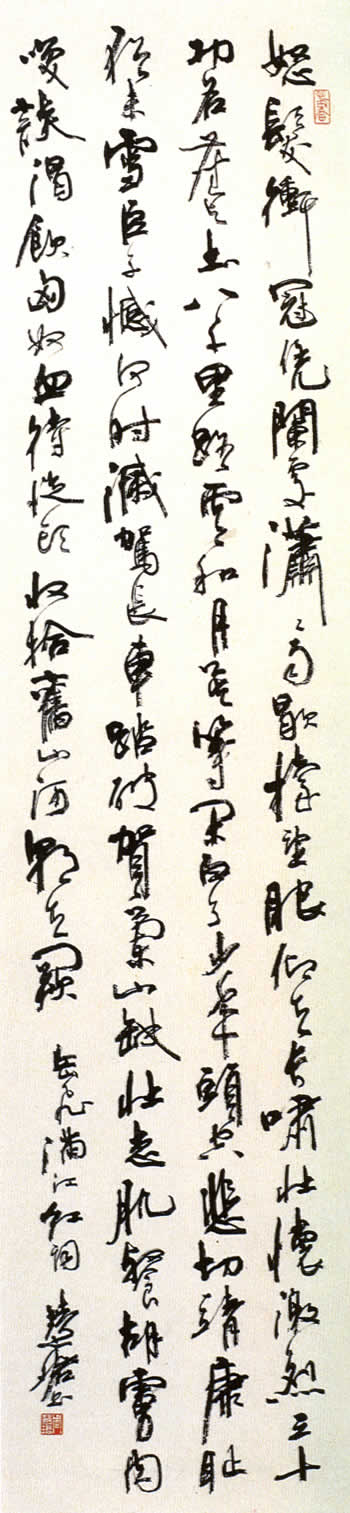 怒髮衝冠凭闌處瀟々雨歇擡望眼仰天長嘯壯懷激烈三十
功名塵土八千里路雲和月莫等閑白了少年頭空悲切靖康恥
猶未雪臣子憾何时滅駕長車踏破賀蘭山缺壯志飢餐胡虜肉
笑談渴飲匈奴血待從頭收拾舊山河朝天闕 岳飛滿江紅詞